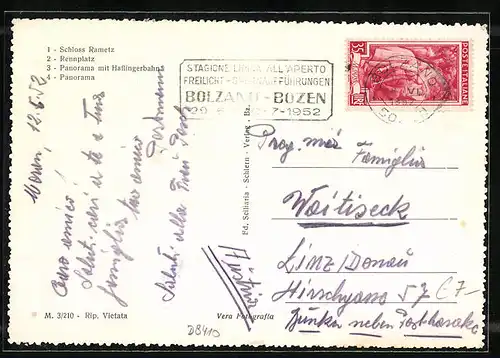 1 - Schloss Rametz
2 - Rennplatz
3 - Panorama mit Haflingerbahn
4 - Panorama
STAGIONE LIRICA ALL'APERTO
FREILICHT-OPERNAUFFÜHRUNGEN
BOLZANO - BOZEN
7-1952
POSTE ITALIANE
LIRE 35
Meran, 12.6.52
Caro amico!
Saluti cari a te e tua
famiglia
tuo amico
Saluti alla
Ed. Sciliaria - Schlern - Verlag - Bz.
Preg. mo Famiglia
Woitiseck
LINZ/Donau
Hirschgasse 57
neben
M. 3/210 - Rip. Vietata
Vera Fotografia
D8410